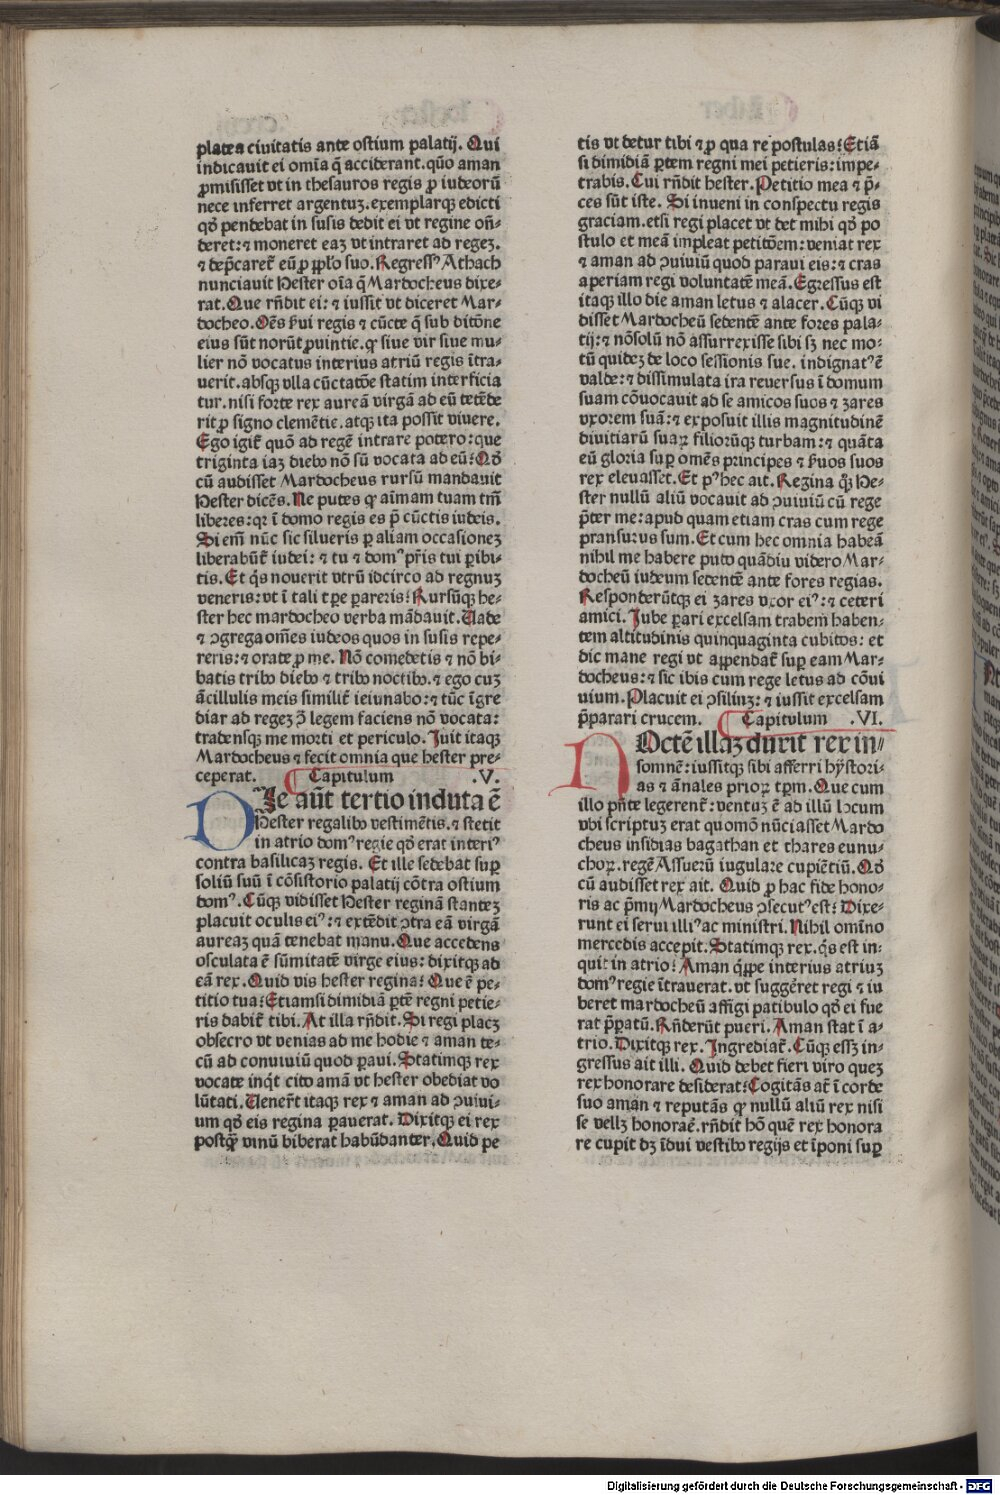 platea ciuitatis ante ostium palatij. Qui
indicauit ei om̄ia q̄ acciderant. quō aman
ꝓmisisset vt in thesauros regis ꝓ iudeorū
nece inferret argentuꝫ. exemplarqꝫ edicti
qḋ pendebat in susis dedit ei vt regine oñ-
deret: ⁊ moneret eaꝫ vt intraret ad regeꝫ.
⁊ dep̄caret̄ eū ꝓ pp̄lo suo. Regressꝰ Athach
nunciauit Hester oīa q̄ Mardocheus dixe-
rat. Que rn̄dit ei: ⁊ iussit vt diceret Mar-
docheo. Oēs ẜui regis ⁊ cūcte q̄ sub ditōne
eius sūt norūt ꝓuintie. ꝙ siue vir siue mu-
lier nō vocatus interius atriū regis ītra-
uerit. absqꝫ vlla cūctatōe statim interficia
tur. nisi forte rex aureā virgā ad eū tetēde
rit ꝓ signo clemētie. atqꝫ ita possit viuere.
Ego igit̄ quō ad regē intrare potero: que
triginta iaꝫ diebꝰ nō sū vocata ad eū? Qḋ
cū audisset Mardocheus rursū mandauit
Hester dicēs. Ne putes ꝙ aīmam tuam tm̄
liberes: qꝛ ī domo regis es p̄ cūctis iudeis.
Si em̄ nūc sic silueris ꝑ aliam occasioneꝫ
liberabūt̄ iudei: ⁊ tu ⁊ domꝰ pr̄is tui ꝑibi-
tis. Et q̇s nouerit vtrū idcirco ad regnuꝫ
veneris: vt ī tali tꝑe ꝑareris? Rursūqꝫ he-
ster hec mardocheo verba mādauit. Uade
⁊ ꝯgrega om̄es iudeos quos in susis repe-
reris: ⁊ orate ꝓ me. Nō comedetis ⁊ nō bi-
batis tribꝰ diebꝰ ⁊ tribꝰ noctibꝰ. ⁊ ego cuꝫ
ācillulis meis similit̄ ieiunabo: ⁊ tūc īgre
diar ad regeꝫ ꝯ̄ legem faciens nō vocata:
tradensqꝫ me morti et periculo. Iuit itaqꝫ
Mardocheus ⁊ fecit omnia que hester pre-
ceperat. Capitulum .V.
DIe aūt tertio induta ē
Hester regalibꝰ vestimētis. ⁊ stetit
in atrio domꝰ regie qḋ erat interiꝰ
contra basilicaꝫ regis. Et ille sedebat suꝑ
soliū suū ī cōsistorio palatij cōtra ostium
domꝰ. Cūqꝫ vidisset Hester reginā stanteꝫ
placuit oculis eiꝰ: ⁊ extēdit ꝯtra eā virgā
aureaꝫ quā tenebat manu. Que accedens
osculata ē sūmitatē virge eius: dixitqꝫ ad
eā rex. Quid vis hester regina? Que ē pe-
titio tua? Etiamsi dimidiā ꝑtē regni petie-
ris dabit̄ tibi. At illa rn̄dit. Si regi placꝫ
obsecro vt venias ad me hodie ⁊ aman te-
cū ad conuiuiū quod ꝑaui. Statimqꝫ rex
vocate inq̇t cito amā vt hester obediat vo
lūtati. Uener̄t itaqꝫ rex ⁊ aman ad ꝯuiui-
um qḋ eis regina ꝑauerat. Dixitqꝫ ei rex
postqꝫ̄ vinū biberat habūdanter. Quid pe
tis vt detur tibi ⁊ ꝓ qua re postulas? Etiā
si dimidiā ꝑtem regni mei petieris: impe-
trabis. Cui rn̄dit hester. Petitio mea ⁊ p̄-
ces sūt iste. Si inueni in conspectu regis
graciam. etsi regi placet vt det mihi qḋ po
stulo et meā impleat petitōem: veniat rex
⁊ aman ad ꝯuiuiū quod paraui eis: ⁊ cras
aperiam regi voluntatē meā. Egressus est
itaqꝫ illo die aman letus ⁊ alacer. Cūqꝫ vi
disset Mardocheū sedentē ante fores pala-
tij: ⁊ nōsolū nō assurrexisse sibi sꝫ nec mo-
tū quideꝫ de loco sessionis sue. indignatꝰ ē
valde: ⁊ dissimulata ira reuersus ī domum
suam cōuocauit ad se amicos suos ⁊ zares
vxorem suā: ⁊ exposuit illis magnitudinē
diuitiarū suaꝝ filiorūqꝫ turbam: ⁊ quāta
eū gloria suꝑ omēs principes ⁊ ẜuos suos
rex eleuasset. Et pꝰ hec ait. Regina qꝫ̄ He-
ster nullū aliū vocauit ad ꝯuiuiū cū rege
p̄ter me: apud quam etiam cras cum rege
pransurus sum. Et cum hec omnia habeā
nihil me habere puto quādiu videro Mar-
docheū iudeum sedentē ante fores regias.
Responderūtqꝫ ei zares vxor eiꝰ: ⁊ ceteri
amici. Iube ꝑari excelsam trabem haben-
tem altitudinis quinquaginta cubitos: et
dic mane regi vt appendat̄ suꝑ eam Mar-
docheus: ⁊ sic ibis cum rege letus ad cōui
uium. Placuit ei ꝯsiliuꝫ: ⁊ iussit excelsam
p̄parari crucem. Capitulum .VI.
NOctē illaꝫ duxit rex in-
somnē: iussitqꝫ sibi afferri hẏstori-
as ⁊ ānales prioꝝ tꝑm. Que cum
illo pn̄te legerent̄: ventuꝫ ē ad illū locum
vbi scriptuꝫ erat quomō nūciasset Mardo
cheus insidias bagathan et thares eunu-
choꝝ. regē Assuerū iugulare cupiētiū. Qḋ
cū audisset rex ait. Quid ꝓ hac fide hono-
ris ac p̄mij Mardocheus ꝯsecutꝰ est? Dixe-
runt ei serui illiꝰ ac ministri. Nihil omīno
mercedis accepit. Statimqꝫ rex. q̇s est in-
quit in atrio? Aman qꝫ̄pe interius atriuꝫ
domꝰ regie ītrauerat. vt suggēret regi ⁊ iu
beret mardocheū affigi patibulo qḋ ei fue
rat p̄ꝑatū. Rn̄derūt pueri. Aman stat ī a-
trio. Dixitqꝫ rex. Ingrediat̄. Cūqꝫ essꝫ in-
gressus ait illi. Quid debet fieri viro queꝫ
rex honorare desiderat? Cogitās at̄ ī corde
suo aman ⁊ reputās ꝙ nullū aliū rex nisi
se vellꝫ honorare. rn̄dit hō quē rex honora
re cupit dꝫ īdui vestibꝰ regijs et īponi suꝑ
Digitalisierung gefördert durch die Deutsche Forschungsgemeinschaft - DFG